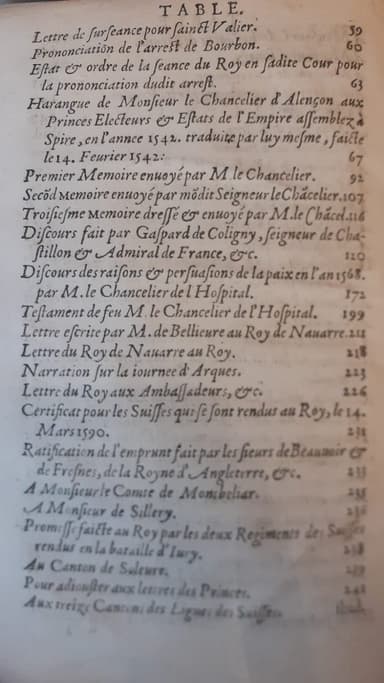 TABLE.
Lettre de surseance pour sainct Valier. 59
Prononciation de l'arrest de Bourbon. 60
Estat & ordre de la seance du Roy en sadite Cour pour
la prononciation dudit arrest. 63
Harangue de Monsieur le Chancelier d'Alençon aux
Princes Electeurs & Estats de l'Empire assemblez à
Spire, en l'annee 1542. traduite par luy mesme, faicte
le 14. Feurier 1542: 67
Premier Memoire enuoyé par M. le Chancelier. 92
Secõd Memoire enuoyé par mõdit Seigneur le Chãcelier. 107
Troisiesme Memoire dressé & enuoyé par M. le Chãcel. 116
Discours fait par Gaspard de Coligny, seigneur de Cha-
stillon & Admiral de France, &c. 120
Discours des raisons & persuasions de la paix en l'an 1568.
par M. le Chancelier de l'Hospital. 172
Testament de feu M. le Chancelier de l'Hospital. 199
Lettre escrite par M. de Bellieure au Roy de Nauarre. 211
Lettre du Roy de Nauarre au Roy. 218
Narration sur la iournee d'Arques. 223
Lettre du Roy aux Ambassadeurs, &c. 226
Certificat pour les Suisses qui se sont rendus au Roy, le 14.
Mars 1590. 231
Ratification de l'emprunt fait par les sieurs de Beauuoir &
de Fresnes, de la Royne d'Angleterre, &c. 233
A Monsieur le Comte de Montbeliar. 235
A Monsieur de Sillery. 236
Promesse faicte au Roy par les deux Regiments des Suisses
rendus en la bataille d'Iury. 238
Au Canton de Saleure. 239
Pour adiouster aux lettres des Princes. 241
Aux treize Cantons des Ligues des Suisses. ibid.